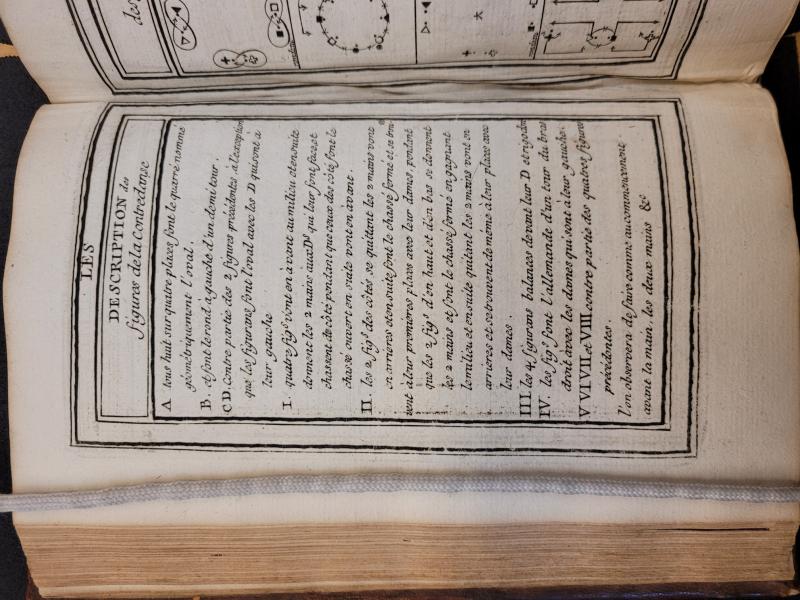 LES
DESCRIPTION des
figures de la Contredanse
A tous huit sur quatre places font le quarré nommé
géometriquement l'oval.
B. et font le rond a gauche d'un demi tour.
C D. contre partie des 2 figures précédentes à l'exception
que les figurans font l'oval avec les D qui sont à
leur gauche
I. quatre figs vont en avant au milieu et ensuite
donnent les 2 mains aux Ds qui leur font face et
chassent de côté pendant que ceux des côté font le
chassé ouvert en suite vont en avant.
II. les 2 figs des côtés se quitant les 2 mains vont
en arrieres et ensuite font le chassé fermé et se trou
vent à leur premieres places avec leur dames, pendant
que les 2 figs d'en haut et d'en bas se donnent
les 2 mains et font le chassé fermé en gagnant
le milieu et ensuite quitant les 2 mains vont en
arrieres et se trouvent de même à leur place avec
leur dames.
III les 4 figurans balancés devant leur D et rigodon
IV. les figs font l'allemande d'un tour du bras
droit avec les dames qui sont à leur gauche.
V VI VII et VIII contre partie des quatres figures
précédentes.
l'on observera de faire comme au commencement
avant la main, les deux mains &c
des